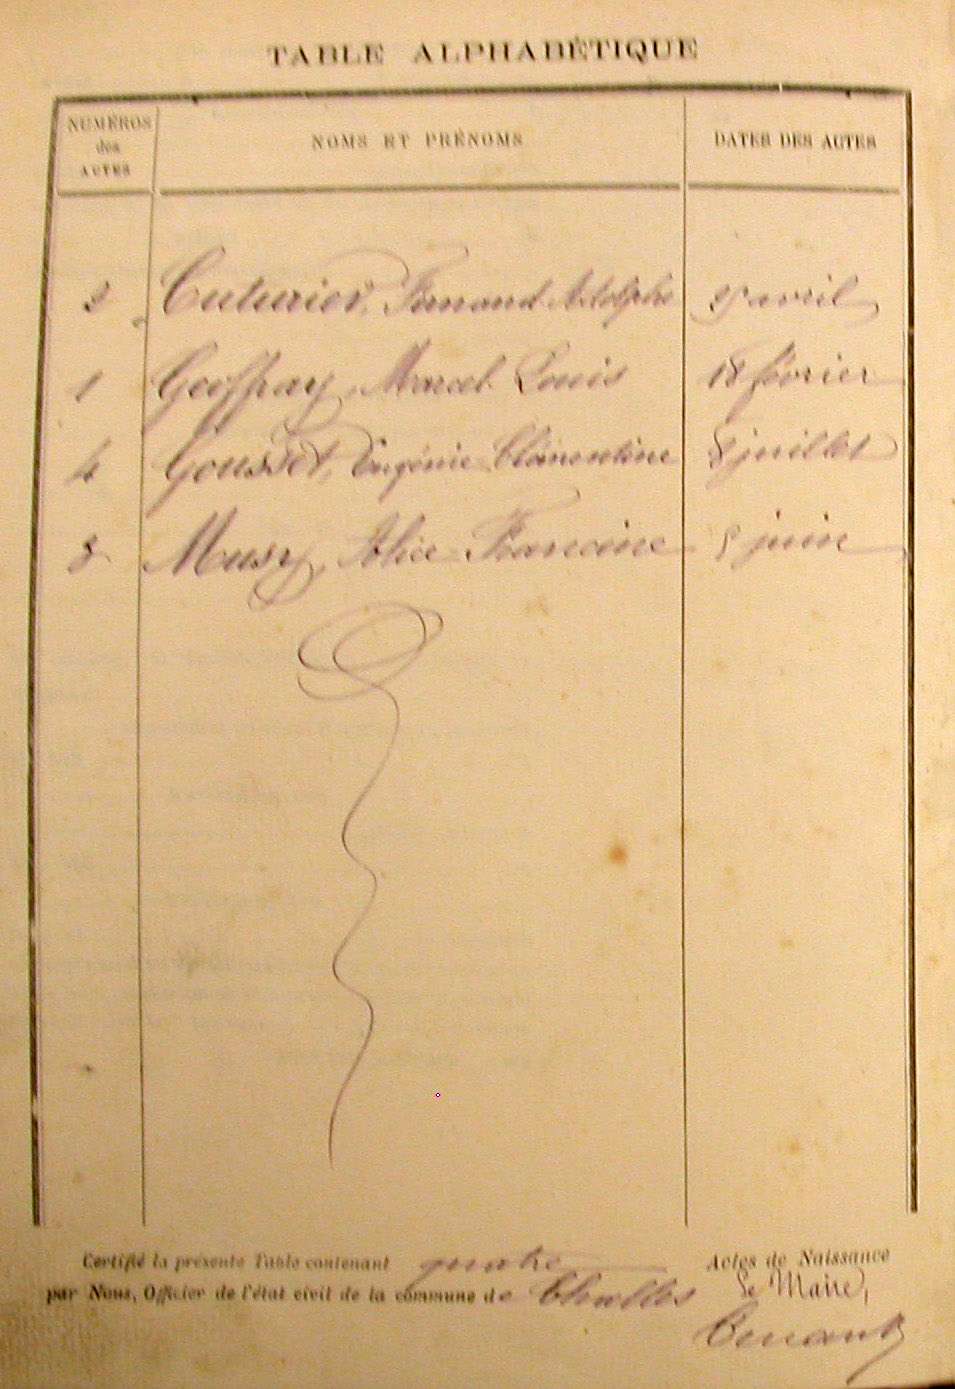 TABLE ALPHABÉTIQUE
NUMÉROS
des
ACTES
NOMS ET PRÉNOMS
DATES DES ACTES
2 Cuturier, Fernand Adolphe avril
1 Geoffray, Marcel Louis 18 février
4 Gousset, Eugénie Clémentine 8 juillet
3 Musy, Alice Francine juin
Certifié la présente Table contenant quatre Actes de Naissance
par Nous, Officier de l'état civil de la commune de Challes Le Maire,